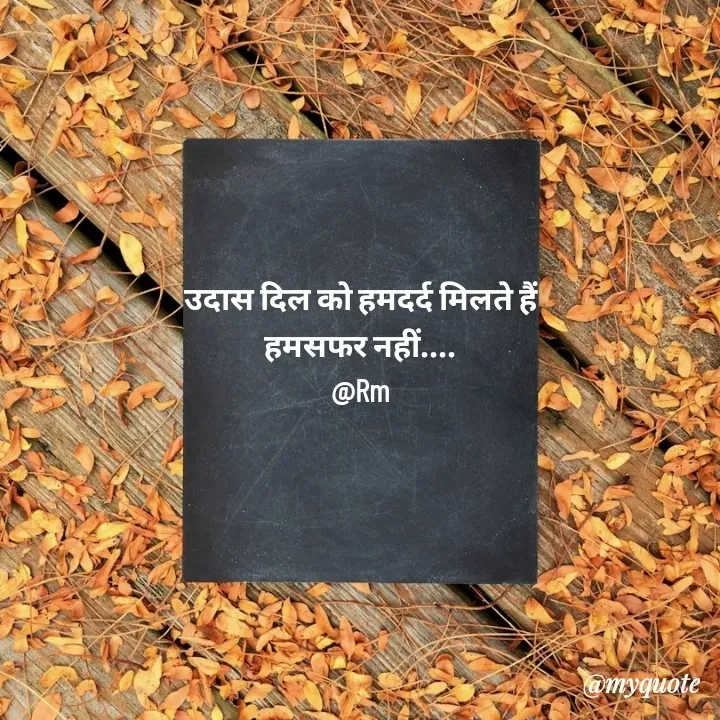 उदास दिल को हमदर्द मिलते हैं
हमसफर नहीं....
@Rm
@myquote